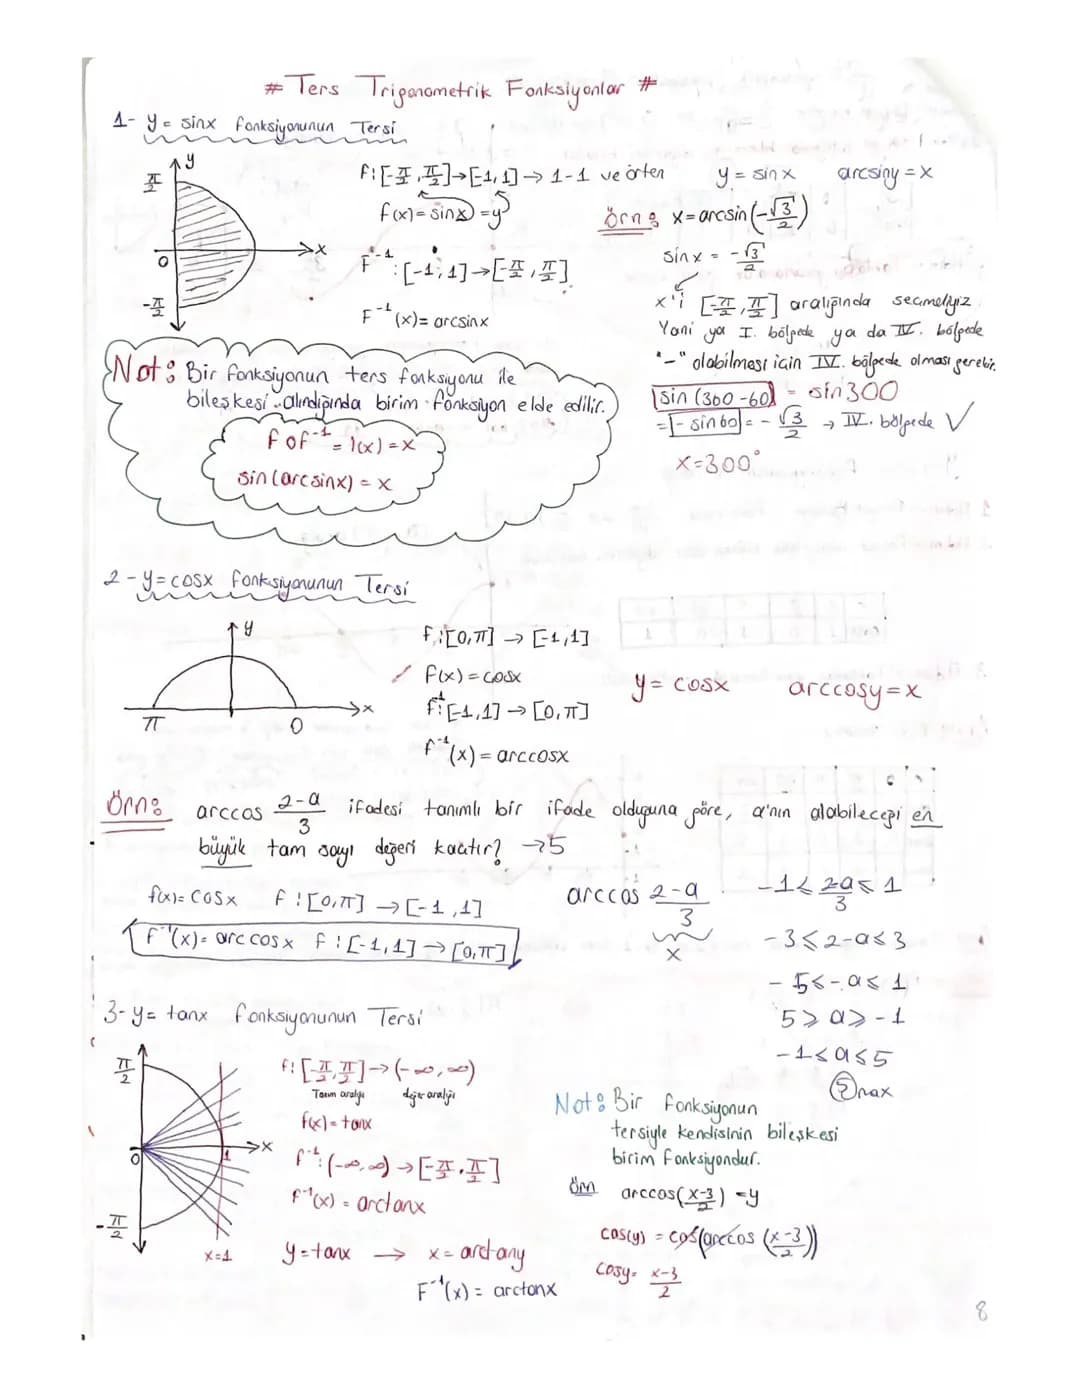 # Ters Trigonometrik Fonksiyonlar #
1- y = sinx fonksiyonunun Tersi
y
π/2
0
x
-π/2
f:[-π/2, π/2]→[-1,1]→ 1-1 ve örten
f(x)=sinx=y
F⁻¹:[-1,1]→[-π/2, π/2]
F⁻¹(x)= arcsinx
y = sinx arcsiny = x
Örn: x=arcsin(-√3/2)
sinx = -√3/2
x'i [-π/2, π/2] aralığında seçmeliyiz
Yani ya I. bölgede ya da IV. bölgede
"-" olabilmesi için IV. bölgede olması gerekir.
sin(360-60) = sin300
= -sin60 = -√3/2 → IV. bölgede ✓
x=300°
Not: Bir fonksiyonun ters fonksiyonu ile
bileşkesi alındığında birim fonksiyon elde edilir.
fof⁻¹ = I(x) = x
sin(arcsinx) = x
2- y=cosx fonksiyonunun Tersi
y
π
0
x
f:[0,π] → [-1,1]
f(x) = cosx
f⁻¹:[-1,1] → [0,π]
f⁻¹(x) = arccosx
y = cosx arccosy=x
Örn: arccos 2-a/3 ifadesi tanımlı bir ifade olduguna göre, a'nın alabileceği en
büyük tam sayı değeri kaçtır? →5
f(x)= cosx f:[0,π] → [-1,1]
f⁻¹(x)= arccosx f:[-1,1] → [0,π]
arccos 2-a/3
x
-1≤ 2-a/3 ≤ 1
-3 ≤ 2-a ≤ 3
-5 ≤ -a ≤ 1
5 ≥ a ≥ -1
-1 ≤ a ≤ 5
5 max
3- y= tanx fonksiyonunun Tersi
π/2
0
1
x
-π/2
x=1
f:[-π/2, π/2]→(-∞,∞)
Tanım aralığı değer aralığı
f(x)=tanx
f⁻¹:(-∞,∞)→[-π/2, π/2]
f⁻¹(x) = arctanx
y=tanx → x= arctany
F⁻¹(x) = arctanx
Not: Bir fonksiyonun
tersiyle kendisinin bileşkesi
birim fonksiyondur.
Örn arccos(x-3/2) =y
cos(y) = cos(arccos(x-3/2))
cosy= x-3/2
8